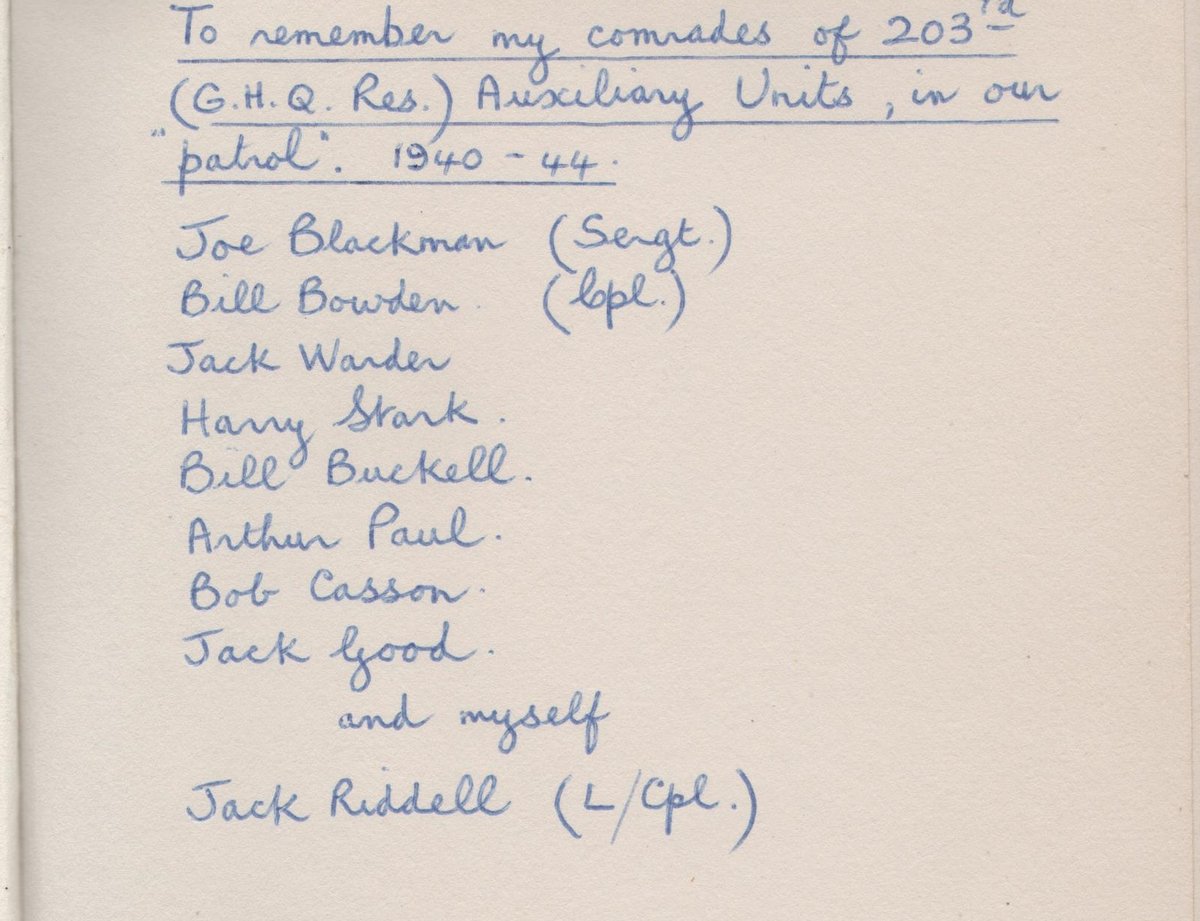 To remember my comrades of 203rd
(G.H.Q. Res.) Auxiliary Units, in our
"patrol". 1940 - 44.
Joe Blackman (Sergt.)
Bill Bowden. (Cpl.)
Jack Warder
Harry Stark.
Bill Buckell.
Arthur Paul.
Bob Casson.
Jack Good.
and myself
Jack Riddell (L/Cpl.)